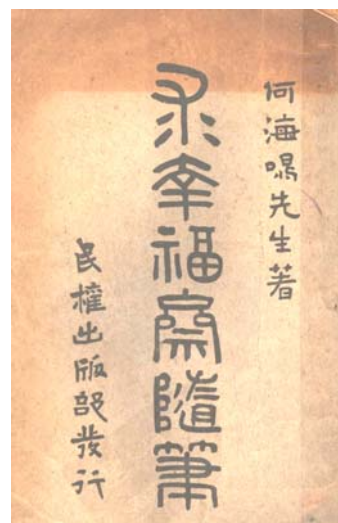 何海鳴先生著
求幸福齋隨筆
民權出版部發行